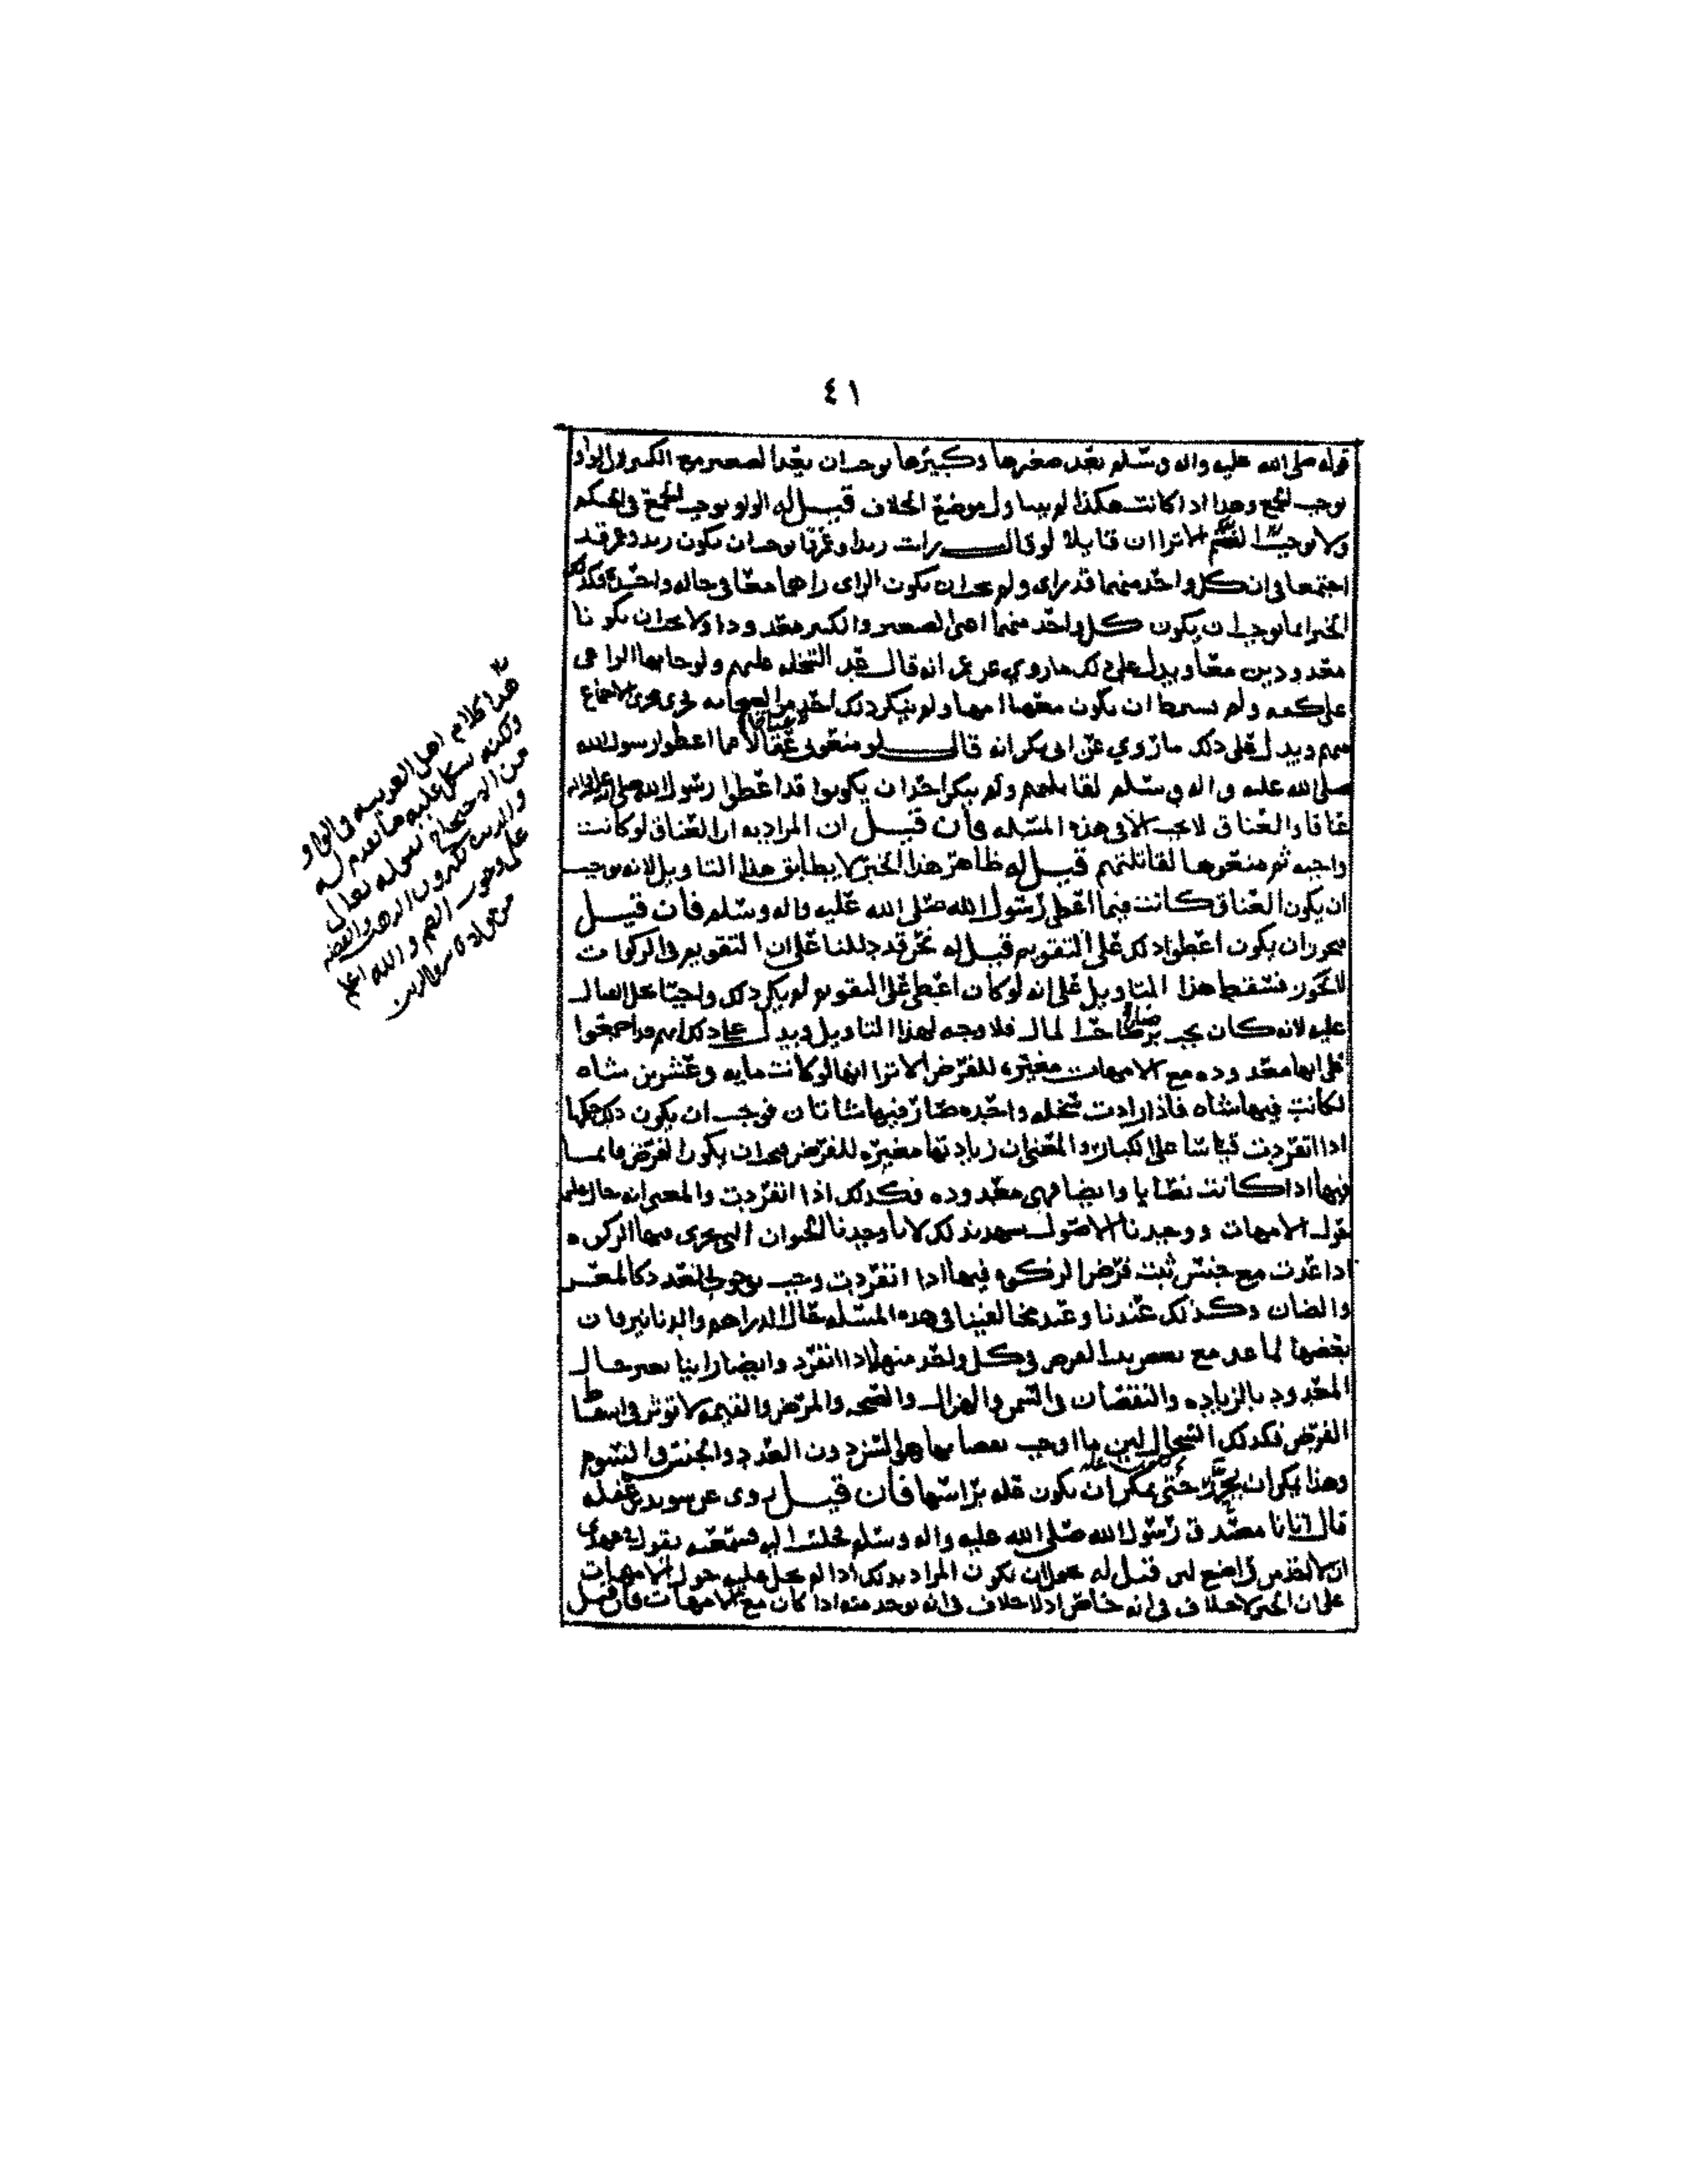 ٤١
قوله صلى الله عليه واله وسلم بعد صغيرها وكبيرها يوجب ان يعد الصغير مع الكبير لان الواو
توجب الجمع وهذا اذا كانت هكذا لم يتناول موضع الخلاف قيل له الواو يوجب الجمع في الحكم
ولا يوجب الضم الا ترا ان قايلا لو قال رايت زيدا وعمرا يوجب ان يكون زيد وعمرو قد
اجتمعا في ان كل واحد منهما قد رأى ولم يجب ان يكون الراى راهما معا في حالة واحدة فكذلك
الخبر انما يوجب ان يكون كل واحد منهما اعنى الصغير والكبير معدودا ولا يجب ان يكونا
معدودين معا ويدل على ذلك ما روي عن عمر انه قال عد السخله عليهم ولو جا بها الراعى
على كفه ولم يشترط ان يكون معها امها ولم ينكر ذلك احد من الصحابه فجرى مجرى الاجماع
منهم ويدل على ذلك ما روي عن ابى بكر انه قال لو منعوني عقالا مما اعطوا رسول الله
صلى الله عليه واله وسلم لقاتلتهم ولم ينكر احد ان يكونوا قد اعطوا رسول الله صلى الله عليه واله
عناقا والعناق لا يجب الا في هذه المسئله فان قيل ان المراد به ان العناق لو كانت
واجبه ثم منعوها لقاتلتهم قيل له ظاهر هذا الخبر لا يطابق هذا التاويل لانه يوجب
ان يكون العناق كانت فيما اعطى رسول الله صلى الله عليه واله وسلم فان قيل
فيجوز ان يكون اعطوا ذلك على التقويم قيل له نحن قد دللنا على ان التقويم في الزكوات
لا يجوز فسقط هذا التاويل على انه لو كان اعطى على التقويم لم يكن ذلك واجبا على
عليه لانه كان يجب برضا صاحب المال فلا وجه لهذا التاويل ويدل على ذلك انهم قد اجمعوا
على انها معدوده مع الامهات مغيره للفرض الا ترا انها لو كانت مايه وعشرين شاه
لكانت فيها شاه فاذا زادت سخله واحده صار فيها شاتان فوجب ان يكون ذلك حكمها
اذا انفردت قياسا على الكبار والمعنى ان زيادتها مغيره للفرض فيجب ان يكون الفرض قايما
فيها اذا كانت نصابا وايضا فهى معدوده فكذلك اذا انفردت والمعنى انه حال عليها
حول الامهات ووجدنا الاصول تشهد بذلك لانا وجدنا الحيوان التى تجرى فيها الزكوه
اذا عدت مع جنس ثبت فرض الزكوه فيها اذا انفردت وجب العدد كالمعز
والضان وكذلك عندنا وعند مخالفينا في هذه المسئله حال الدراهم والدنانير فان
بعضها لما عد مع بعض الفرض في كل واحد منها اذا انفرد وايضا راينا تغير حال
المعدود بالزياده والنقصان في السمن والهزال والصحه والمرض والقيمه لا توثر في اسقاط
الفرض فكذلك السخال ليس نقصانها هو السن دون العدد والجنس والسوم
وهذا يمكن ان حتى يمكن ان يكون عله براسها فان قيل روى عن سويد بن غفله
قال اتانا مصدق رسول الله صلى الله عليه واله وسلم فجلست اليه فسمعته يقول في عهدى
ان لا اخذ من راضع لبن قيل له يحتمل ان يكون المراد بذلك اذا لم يحل عليه حول الامهات
على ان الخبر لا خلاف في انه خاص اذ لا خلاف في انه يوخذ منه اذا كان مع الامهات فان قيل
هذا كلام اهل العربيه في الواو
ولكنه يشكل عليه ما تقدم له
من الاحتجاج بقوله تعالى
والذين يكنزون الذهب والفضه
على وجوب الضم والله اعلم